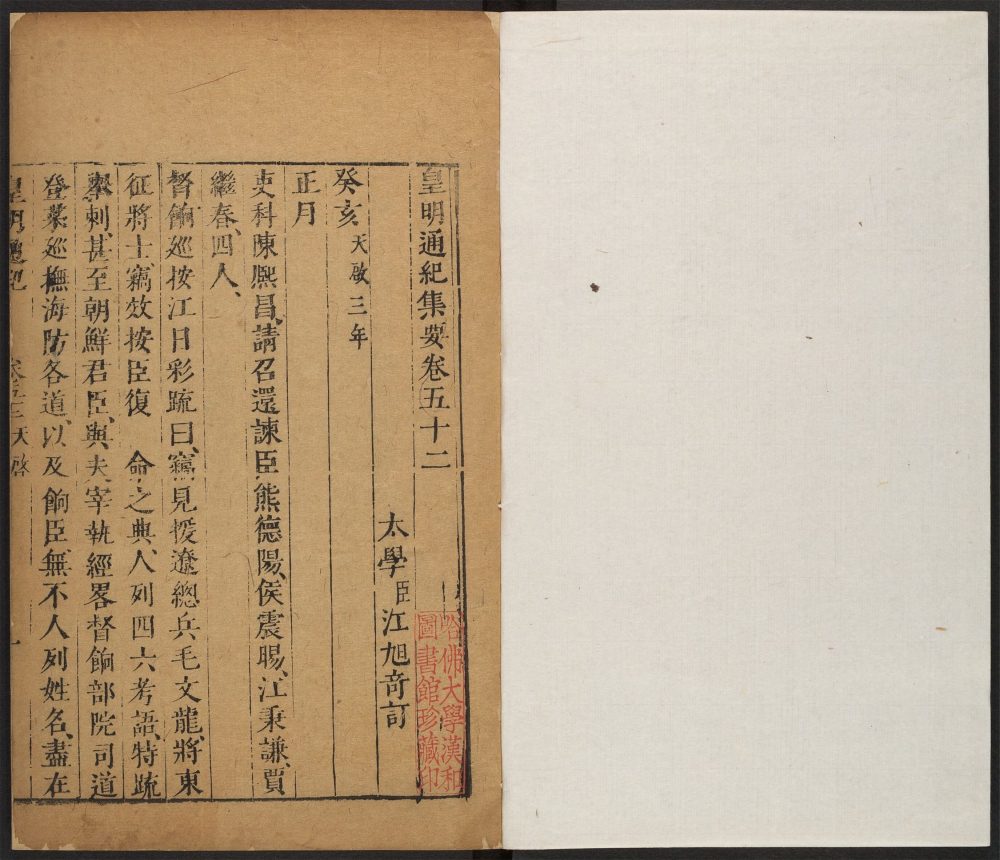 皇明通紀集要卷五十二
太學臣江旭奇訂
癸亥天啟三年
正月
吏科陳熈昌、請召還諫臣熊德陽、侯震暘、江秉謙、賈
繼春、四人、
督餉廵按江日彩疏曰、竊見援遼總兵毛文龍、將東
征將士、竊效按臣復 命之典、人列四六考語、特疏
舉刺、甚至朝鮮君臣、與夫宰執經畧督餉部院司道
登萊廵撫海防各道、以及餉臣、無不人列姓名、盡在
皇明通紀 卷五十二天啟 一
哈佛大學漢和
圖書館珍藏印